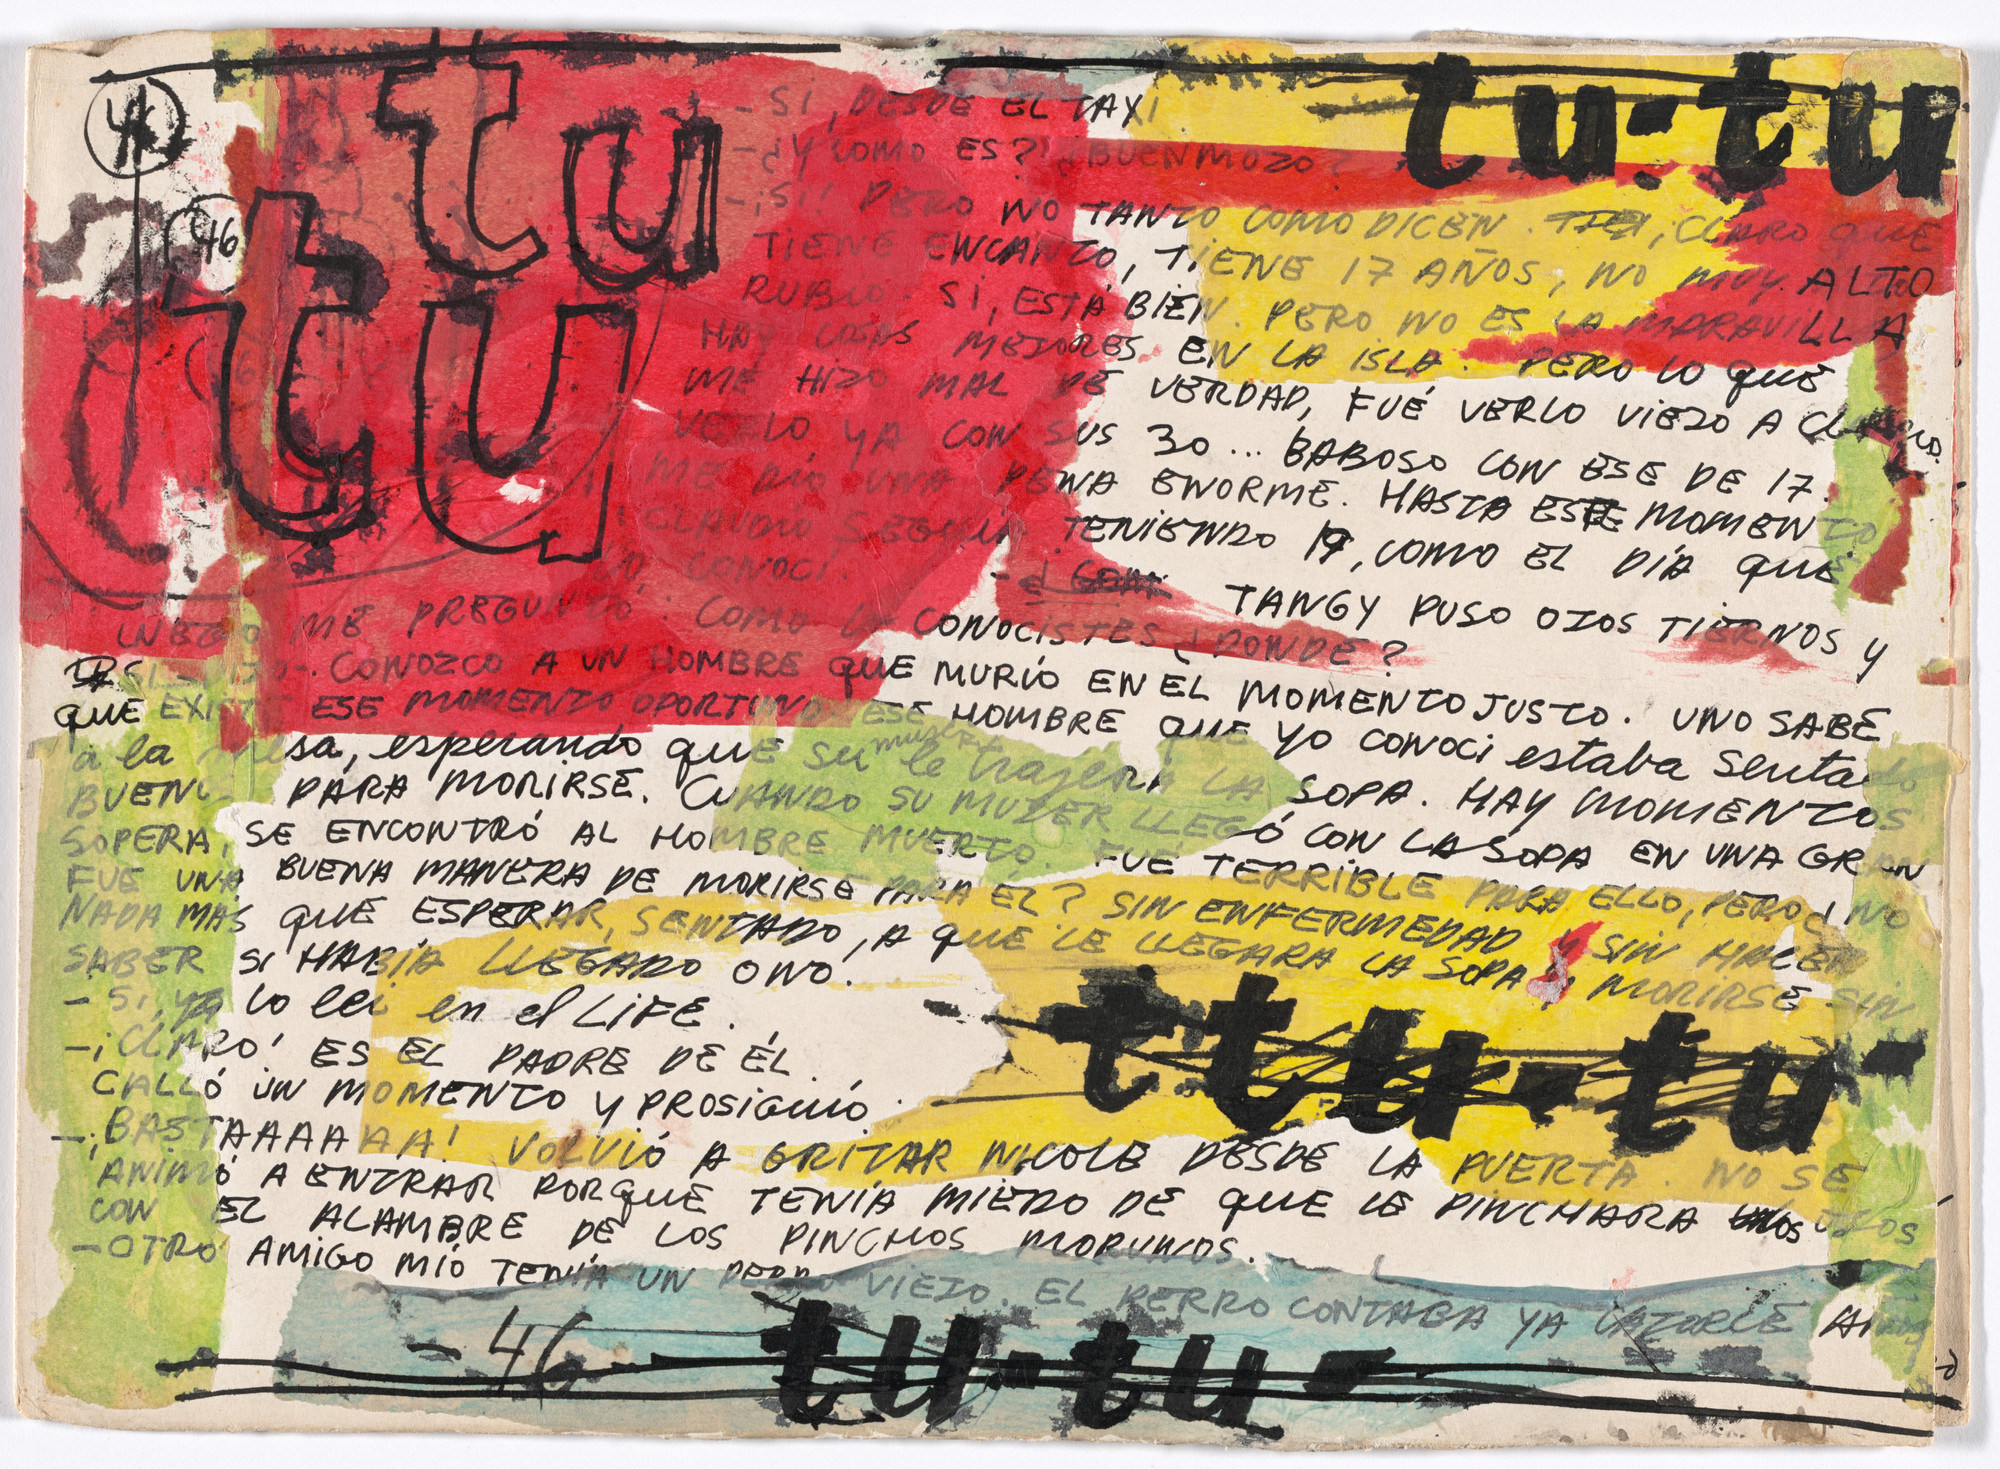 46
46
tu
tu
tu-tu
- SI, DESDE EL TAXI
- ¿Y COMO ES? ¿BUENMOZO?
- ¡SI! PERO NO TANTO COMO DICEN. ¡CLARO QUE
TIENE ENCANTO, TIENE 17 AÑOS, NO MUY ALTO
RUBIO. SI, ESTÁ BIEN. PERO NO ES LA MARAVILLA
HAY COSAS MEJORES EN LA ISLA. PERO LO QUE
ME HIZO MAL DE VERDAD, FUÉ VERLO VIEJO A
VERLO YA CON SUS 30... BABOSO CON ESE DE 17.
ME DIO UNA PENA ENORME. HASTA ESE MOMENTO
CLAUDIO SEGUIA TENIENDO 19, COMO EL DÍA QUE
LO CONOCI. TANGY PUSO OJOS TIERNOS Y
LUEGO ME PREGUNTÓ: COMO LO CONOCISTES ¿DONDE?
SI -DIJO-. CONOZCO A UN HOMBRE QUE MURIÓ EN EL MOMENTO JUSTO. UNO SABE
QUE EXISTE ESE MOMENTO OPORTUNO. ESE HOMBRE QUE YO CONOCI estaba sentado
a la mesa, esperando que su muger le trajera LA SOPA. HAY MOMENTOS
BUENOS PARA MORIRSE. CUANDO SU MUJER LLEGÓ CON LA SOPA EN UNA GRAN
SOPERA, SE ENCONTRÓ AL HOMBRE MUERTO. FUÉ TERRIBLE PARA ELLO, PERO ¿NO
FUE UNA BUENA MANERA DE MORIRSE PARA ÉL? SIN ENFERMEDAD Y SIN HACER
NADA MÁS QUE ESPERAR, SENTADO, A QUE LE LLEGARA LA SOPA Y MORIRSE SIN
SABER SI HABÍA LLEGADO O NO.
- Si, ya lo lei en el LIFE.
- ¡CLARO! ES EL PADRE DE ÉL.
CALLÓ UN MOMENTO Y PROSIGUIÓ.
tu-tu-
- ¡BASTAAAAAAA! VOLVIÓ A GRITAR NICOLE DESDE LA PUERTA. NO SE
ANIMÓ A ENTRAR PORQUE TENÍA MIEDO DE QUE LE PINCHARA LOS OJOS
CON EL ALAMBRE DE LOS PINCHOS MORUNOS.
- OTRO AMIGO MÍO TENÍA UN PERRO VIEJO. EL PERRO CONTABA YA CATORCE AÑOS
- 46
tu-tu-